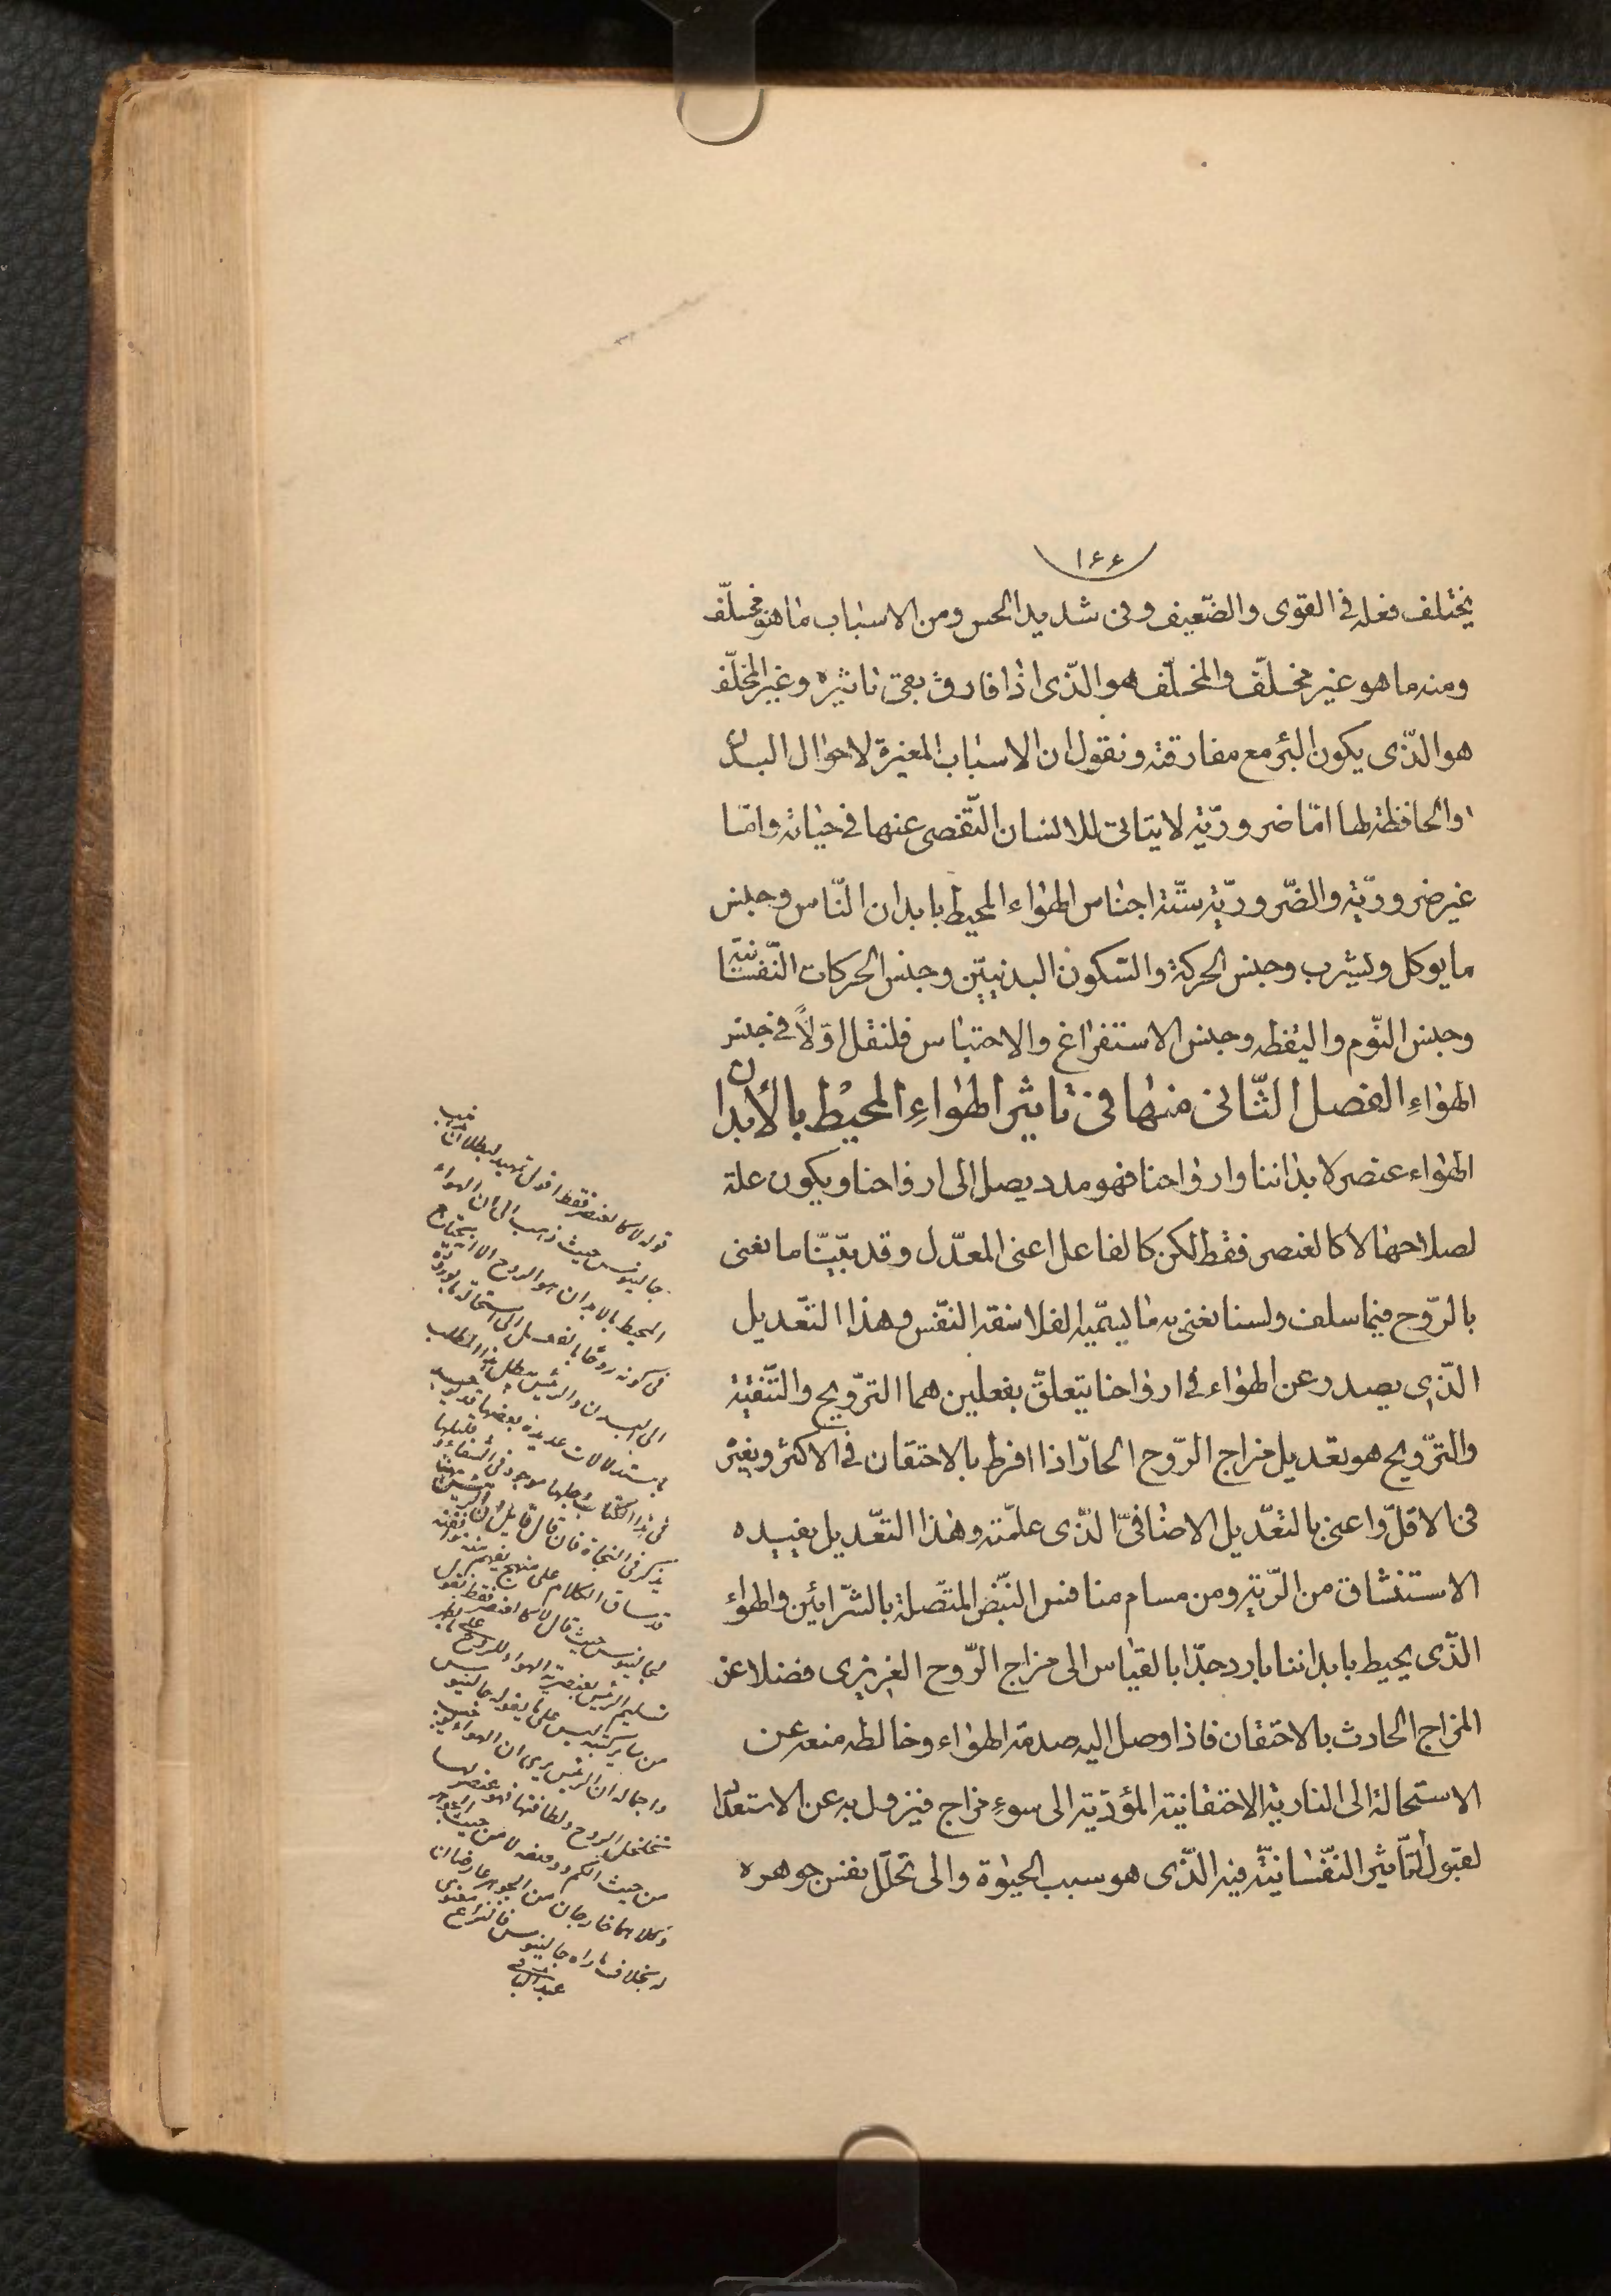 ١٤٤
يختلف فعله فى القوى والضّعيف وفى شديد الحس ومن الاسباب ما هو مخلّف
ومنه ما هو غير مخلّف والمخلّف هو الّذى اذا فارق بقى تاثيره وغير المخلّف
هو الّذى يكون البرء مع مفارقته ونقول ان الاسباب المغيرة لاحوال البدن
والحافظة لها امّا ضروريّة لا يتاتى للانسان التّفصى عنها فى حياته وامّا
غير ضروريّة والضّروريّة ستّة اجناس الهواء المحيط بابدان النّاس وجنس
ما يوكل ويشرب وجنس الحركة والسّكون البدنيّين وجنس الحركات النّفسانيّة
وجنس النّوم واليقظه وجنس الاستفراغ والاحتباس فلنقل اوّلاً فى جنس
الهواءِ الفصل الثّانى منها فى تاثير الهواءِ المحيْط بالأبدان
الهواء عنصر لابداننا وارواحنا فهو مدد يصل الى ارواحنا ويكون علة
لصلاحها لا كالعنصر فقط لكن كالفاعل اعنى المعدّل وقد بيّنّا ما نعنى
بالرّوح فيما سلف ولسنا نعنى به ما يسمّيه الفلاسفة النّفس وهذا التّعديل
الّذى يصدر عن الهواء فى ارواحنا يتعلّق بفعلين هما التّرويح والتّنقية
والتّرويح هو تعديل مزاج الرّوح الحارّ اذا افرط بالاحتقان فى الاكثر وبغيْر
فى الاقلّ واعنى بالتّعديل الاضافىّ الّذى علمّته وهذا التّعديل يفيده
الاستنشاق من الرّية ومن مسام منافس النّبض المتّصلة بالشّرائين والهواء
الّذى يحيط بابداننا بارد جدّا بالقياس الى مزاج الرّوح الغريزى فضلا عن
المزاج الحادث بالاحتقان فاذا وصل اليه صدمة الهواء وخالطه منعه عن
الاستحالة الى النارية الاحتقانية المؤدّية الى سوءِ مزاج فيزول به عن الاستعداد
لقبول التّاثير النّفسانيّة فيه الّذى هو سبب الحيوٰة والى تحلّل نفس جوهره
قوله لا كالعنصر فقط اقول تمهيد لبطلان مذهب
جالينوس حيث ذهب الى ان الهواء
المحيط بالابدان هو الروح الا انه يحتاج
فى كونه روحًا بالفعل الى استحالة
الى البدن والرئيس يبطل هذا المطلب
باستدلالات عديدة بعضها
فى هذا الكتاب وجلها موجود فى الشفاء وقليلها
يذكر فى النجاة فان قال قايل ان الرئيس
قد ساق الكلام على منهج يفهم منه
لجالينوس حيث قال لا كالعنصر فقط
تسليم الرئيس بعنصرية الهواء للروح
من ليس على ما يقوله جالينوس
واجماله ان الرئيس يرى ان الهواء
تتخلخل الروح ولطافتها فهو عنصر لها
من حيث الكم لا من حيث الجوهر
وكلاهما خارجان من الجوهر عارضان
له بخلاف ما راه جالينوس فالنزاع معنوى
عبد الباقى